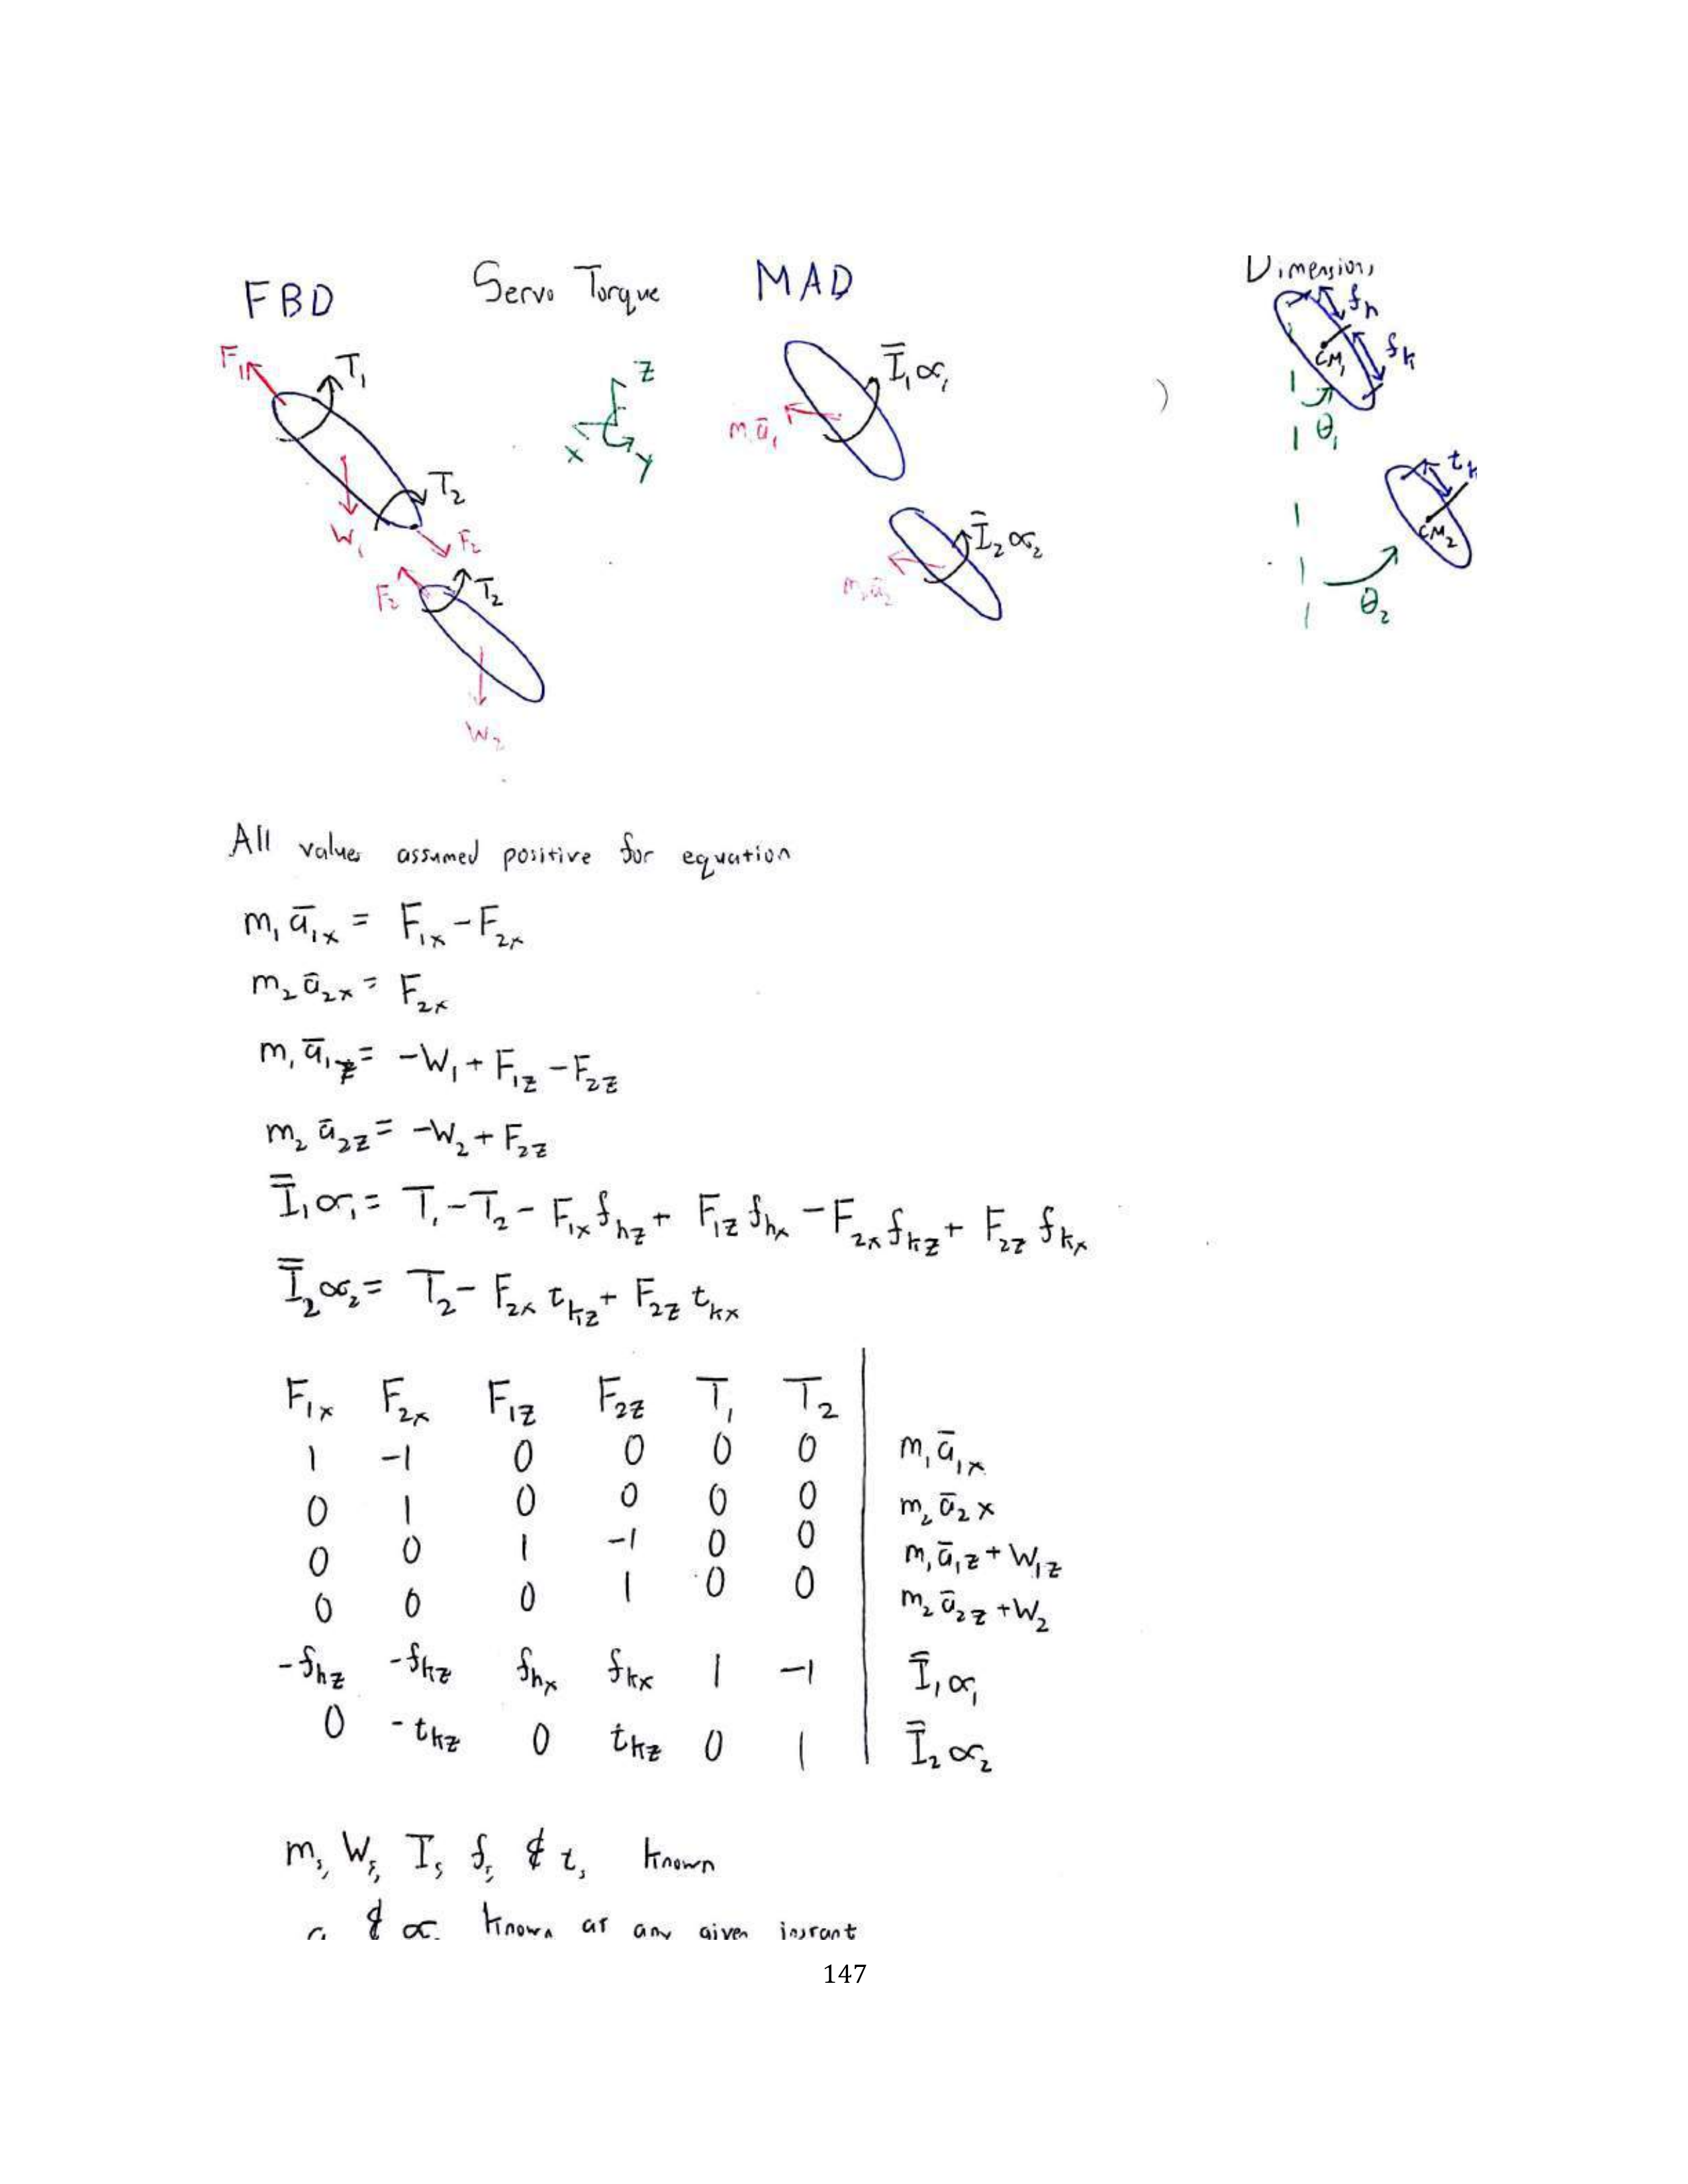 FBD Servo Torque MAD Dimensions
F₁ T₁ Z Ī₁α₁ fₕ
fₖ
CM₁
X Y m₁ā₁ θ₁
T₂ tₖ
W₁ F₂ Ī₂α₂ CM₂
F₂ T₂ m₂ā₂ θ₂
W₂
All values assumed positive for equation
m₁ā₁ₓ = F₁ₓ - F₂ₓ
m₂ā₂ₓ = F₂ₓ
m₁ā₁z = -W₁ + F₁z - F₂z
m₂ā₂z = -W₂ + F₂z
Ī₁α₁ = T₁ - T₂ - F₁ₓfhz + F₁zfhx - F₂ₓfkz + F₂zfkx
Ī₂α₂ = T₂ - F₂ₓtkz + F₂ztkx
F₁ₓ F₂ₓ F₁z F₂z T₁ T₂
1 -1 0 0 0 0 m₁ā₁ₓ
0 1 0 0 0 0 m₂ā₂x
0 0 1 -1 0 0 m₁ā₁z + W₁z
0 0 0 1 0 0 m₂ā₂z + W₂
-fhz -fkz fhx fkx 1 -1 Ī₁α₁
0 -tkz 0 tkz 0 1 Ī₂α₂
m, W, I, f, & t, known
a & α known at any given instant
147